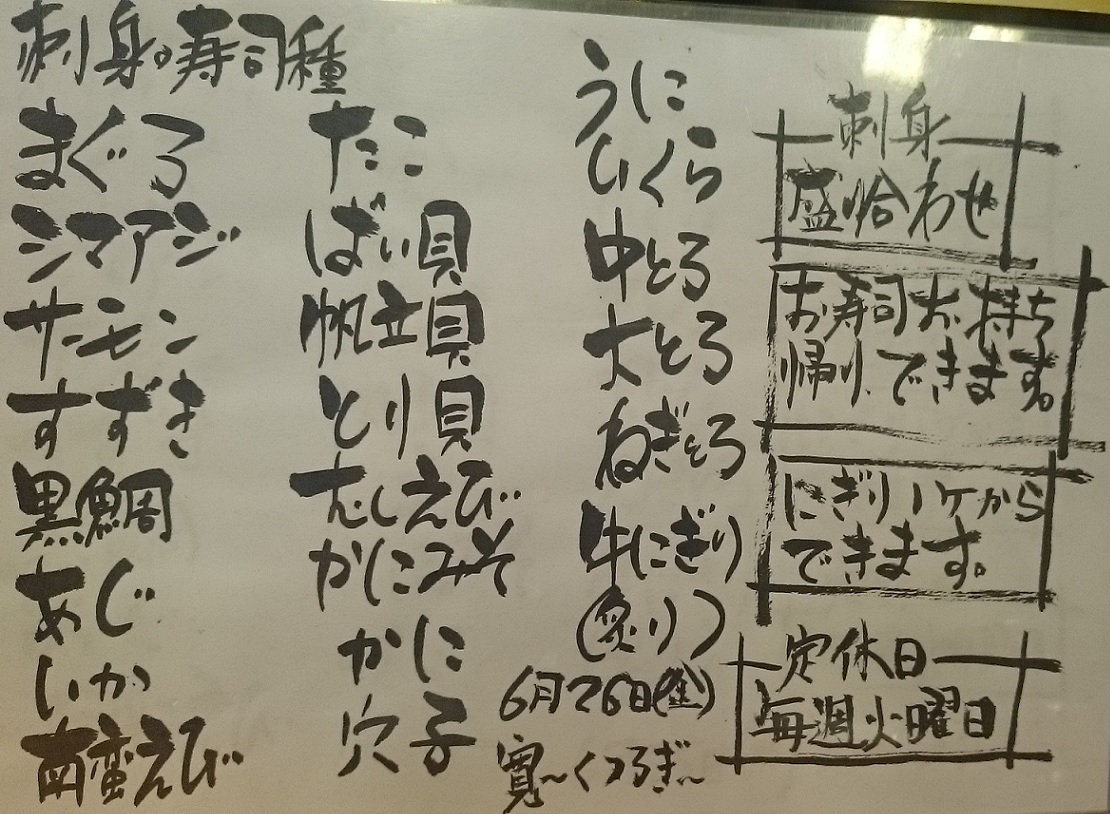 刺身・寿司種
まぐろ
シマアジ
サーモン
すずき
黒鯛
あじ
いか
南蛮えび
たこ
ばい貝
帆立貝
とり貝
むしえび
かにみそ
かに
穴子
うに
いくら
中とろ
大とろ
ねぎとろ
牛にぎり
(炙り)
6月26日(金)
寛〜くつろぎ〜
刺身
盛り合わせ
お寿司お持ち
帰りできます。
にぎり1ケから
できます。
定休日
毎週火曜日